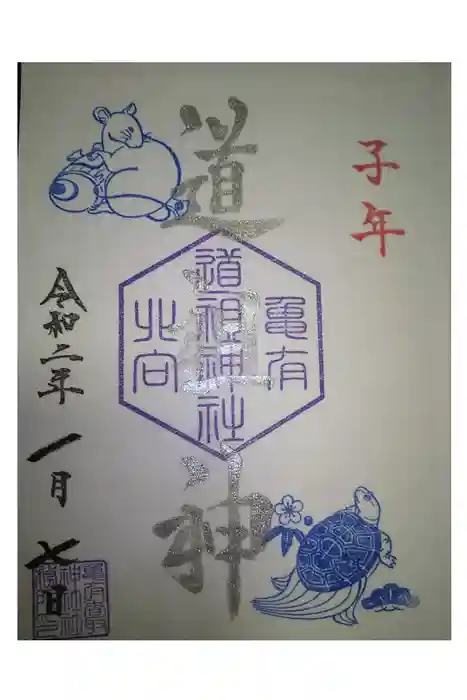 子年
道祖神
亀有
道祖神社
北向
令和二年
一月
七日